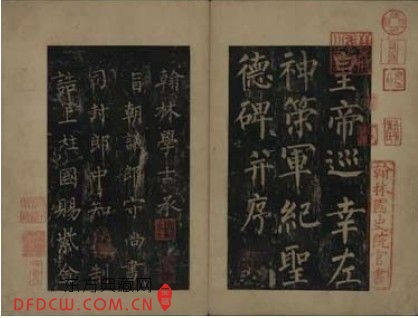 皇帝巡幸左
神策軍紀聖
德碑并序
翰林學士承
旨朝議郎守尚書
司封郎中知制
誥上柱國賜紫金
翰林國史院官書
东方典藏网
DFDCW.COM.CN